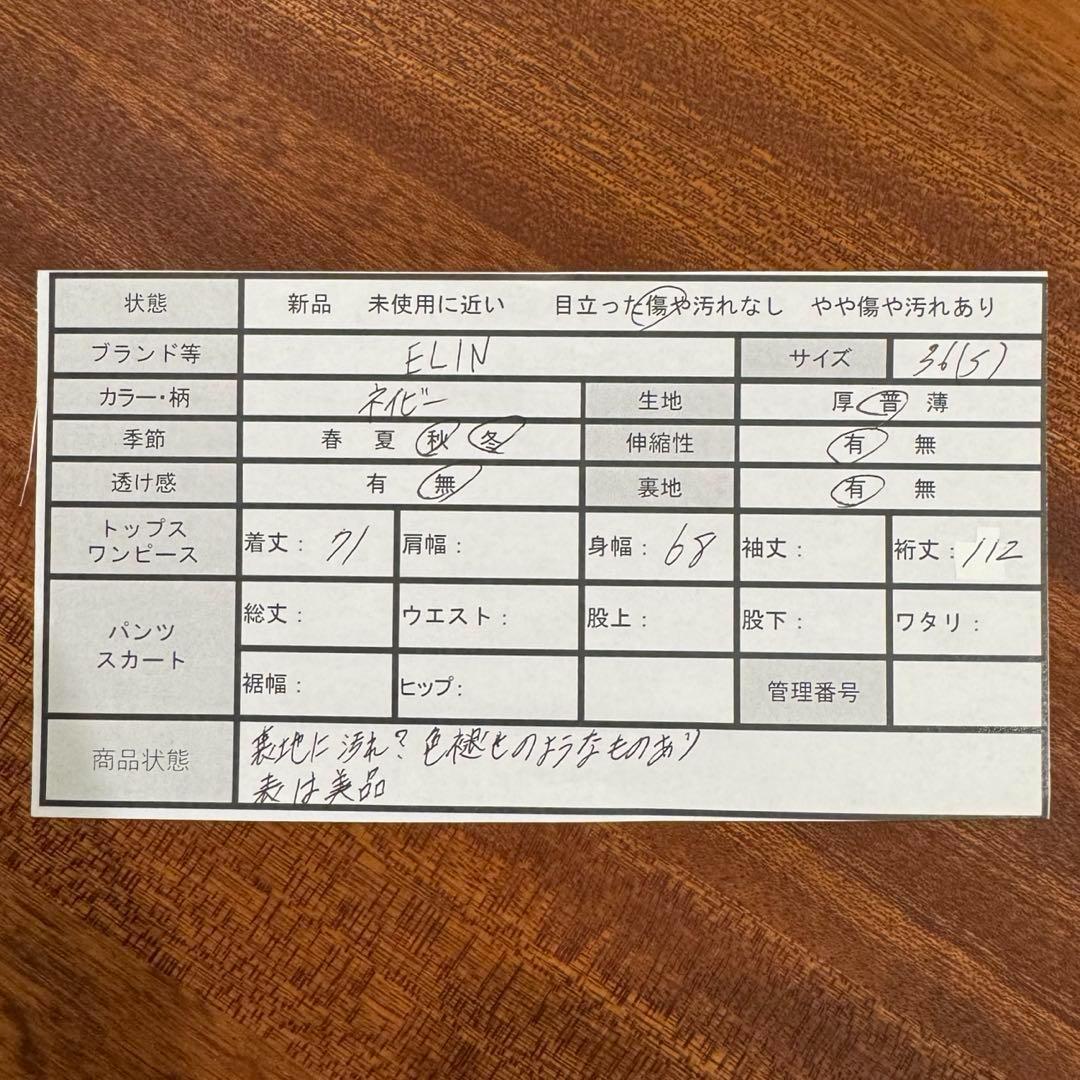 状態 新品 未使用に近い 目立った傷や汚れなし やや傷や汚れあり
ブランド等 ELIN サイズ 36(S)
カラー・柄 ネイビー 生地 厚 普 薄
季節 春 夏 秋 冬 伸縮性 有 無
透け感 有 無 裏地 有 無
トップス
ワンピース
着丈: 71 肩幅: 身幅: 68 袖丈: 裄丈: 112
パンツ
スカート
総丈: ウエスト: 股上: 股下: ワタリ:
裾幅: ヒップ: 管理番号
商品状態
裏地に汚れ?色褪せのようなものあり
表は美品